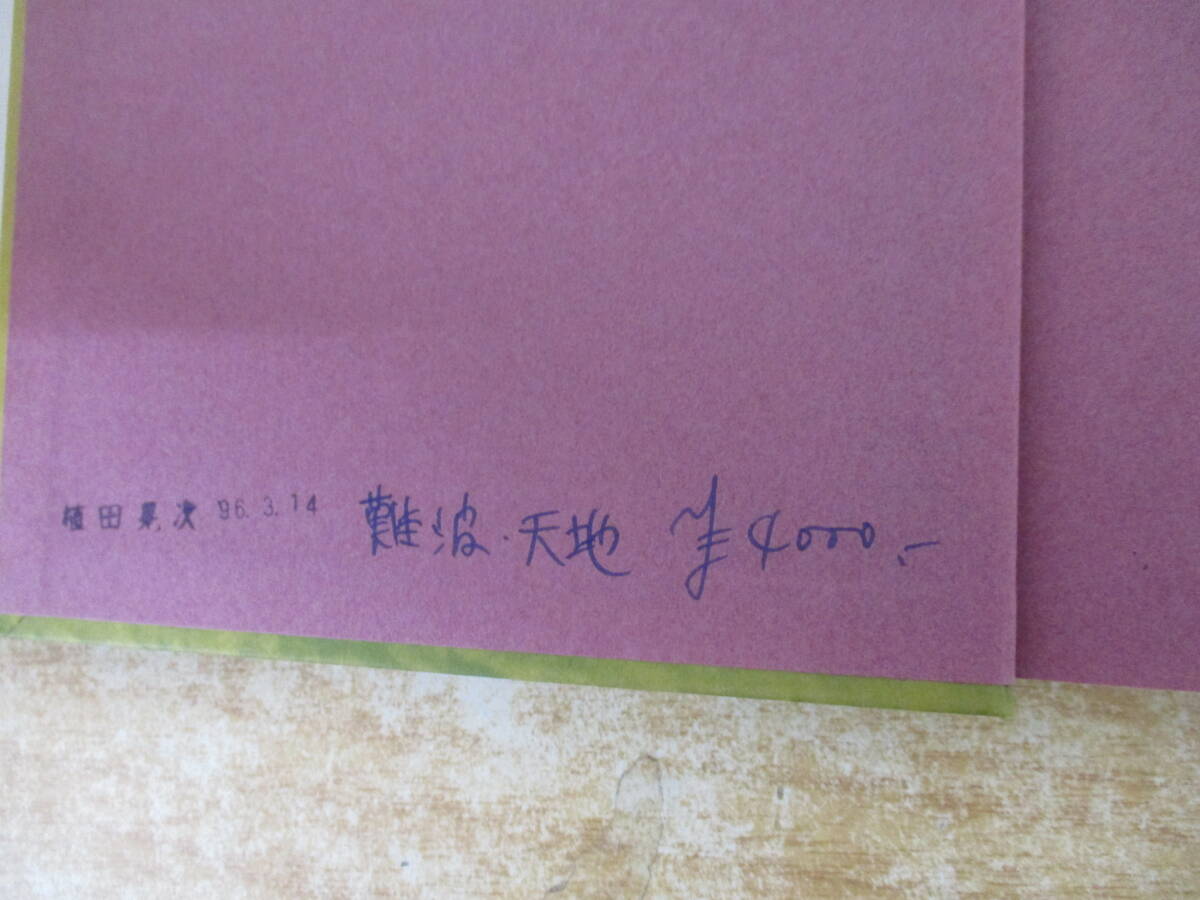 植田晃次 96.3.14 難波・天地 ¥4000.-